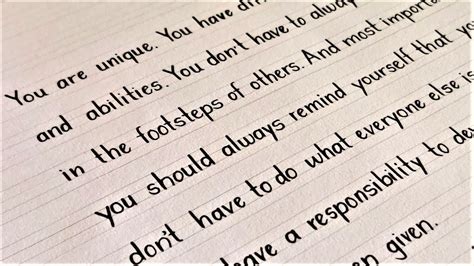 You are unique. You have
and abilities. You don't have to always
in the footsteps of others. And most
you should always remind yourself that
don't have to do what everyone else is
a responsibility to
given.